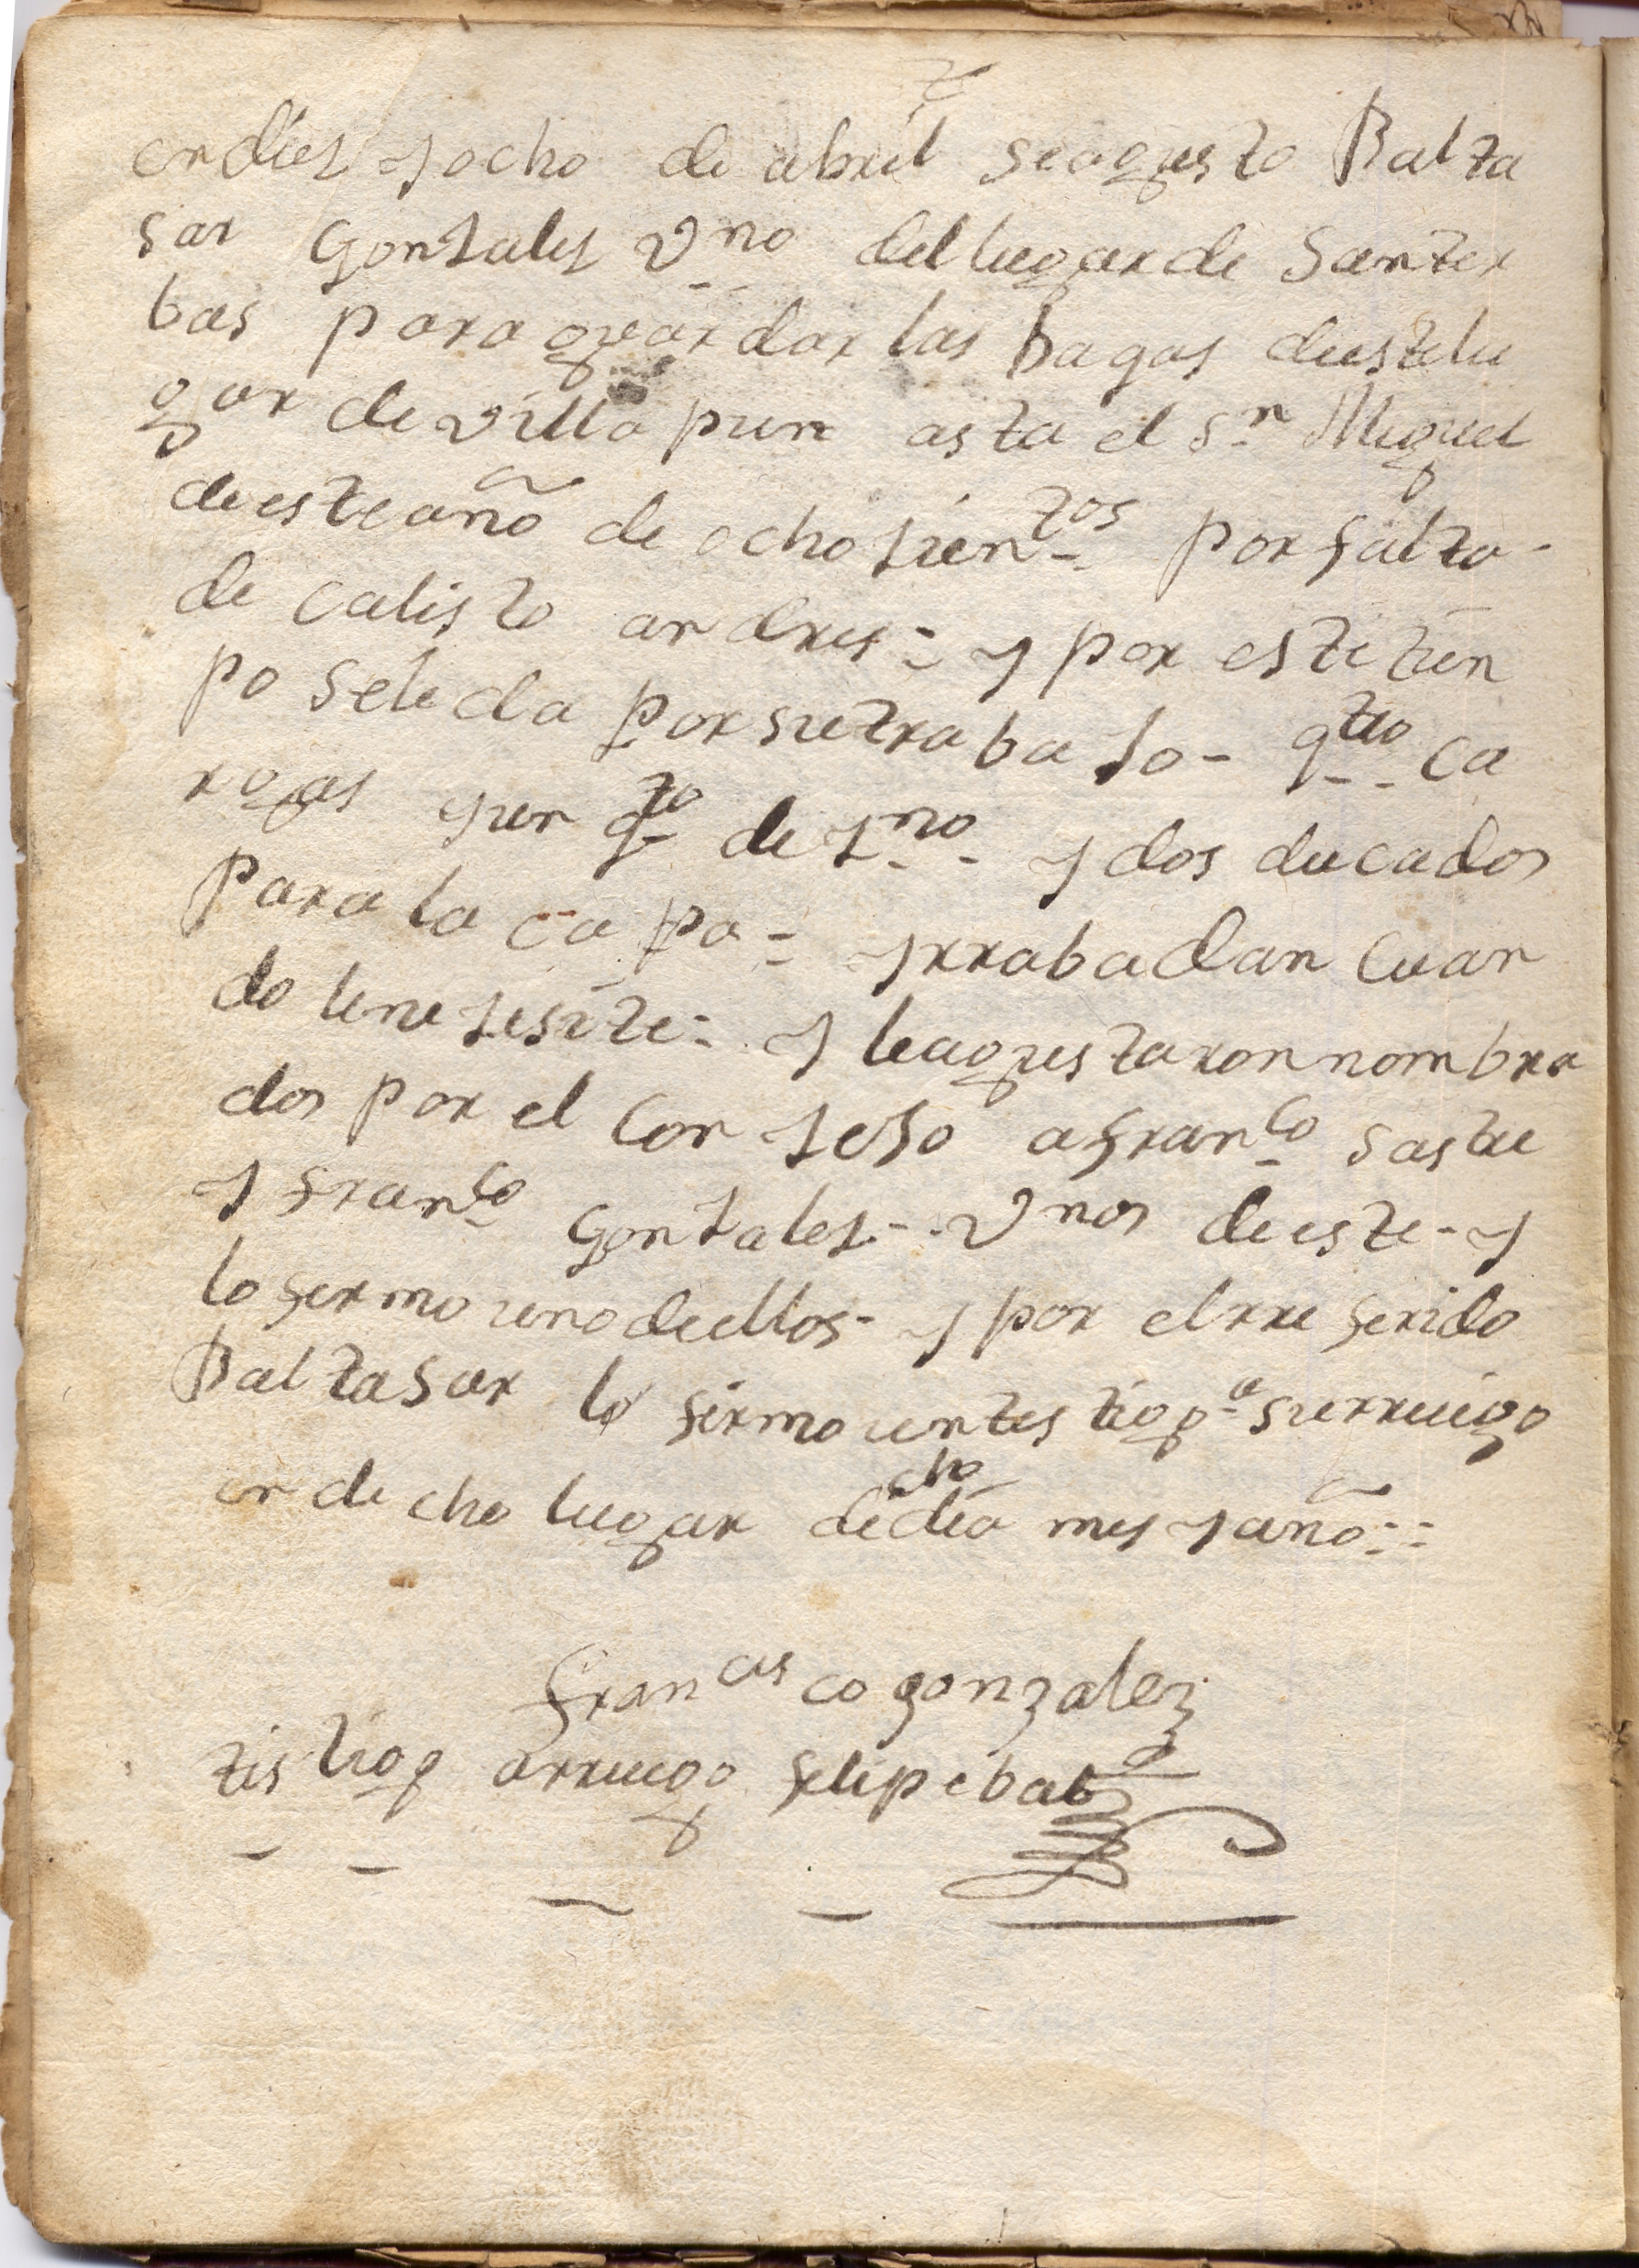 en dies y ocho de abril se agusto Balta
sar Gonzales Vno del lugar de Santer
bas para guardar las bagas de este lu
gar de villa pun asta el Sn Miguel
de este año de ocho sientos por falta
de calisto andres = y por este tien
po se le da por su trabajo - qtro ca
rogas y un qto de zno y dos ducados
Para la capa = y rrabadan cuan
do le nesesite = y le agustaron nombra
dos por el Consejo a franco sastre
y franco Gonzales - Vnos de este - y
lo firmo uno de ellos - y por el rre ferido
Baltasar lo firmo un testigo a su rruego
en de cho lugar dicho dia mes y año =
francisco gonzalez
tistigo a rruego felipe bal